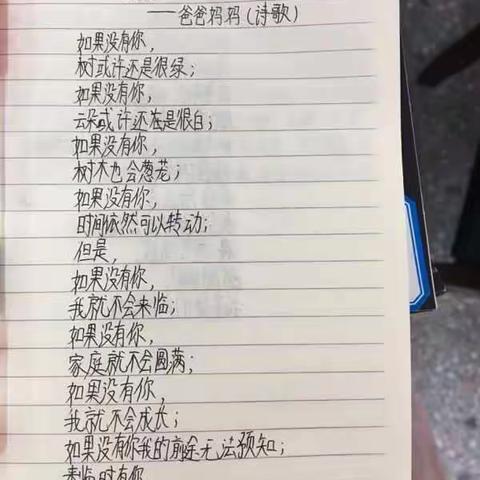 ——爸爸妈妈(诗歌)
如果没有你,
树或许还是很绿;
如果没有你,
云朵或许还是很白;
如果没有你,
树木也会葱茏;
如果没有你,
时间依然可以转动;
但是,
如果没有你,
我就不会来临;
如果没有你,
家庭就不会圆满;
如果没有你,
我就不会成长;
如果没有你我的前途无法预知;
来临时有你